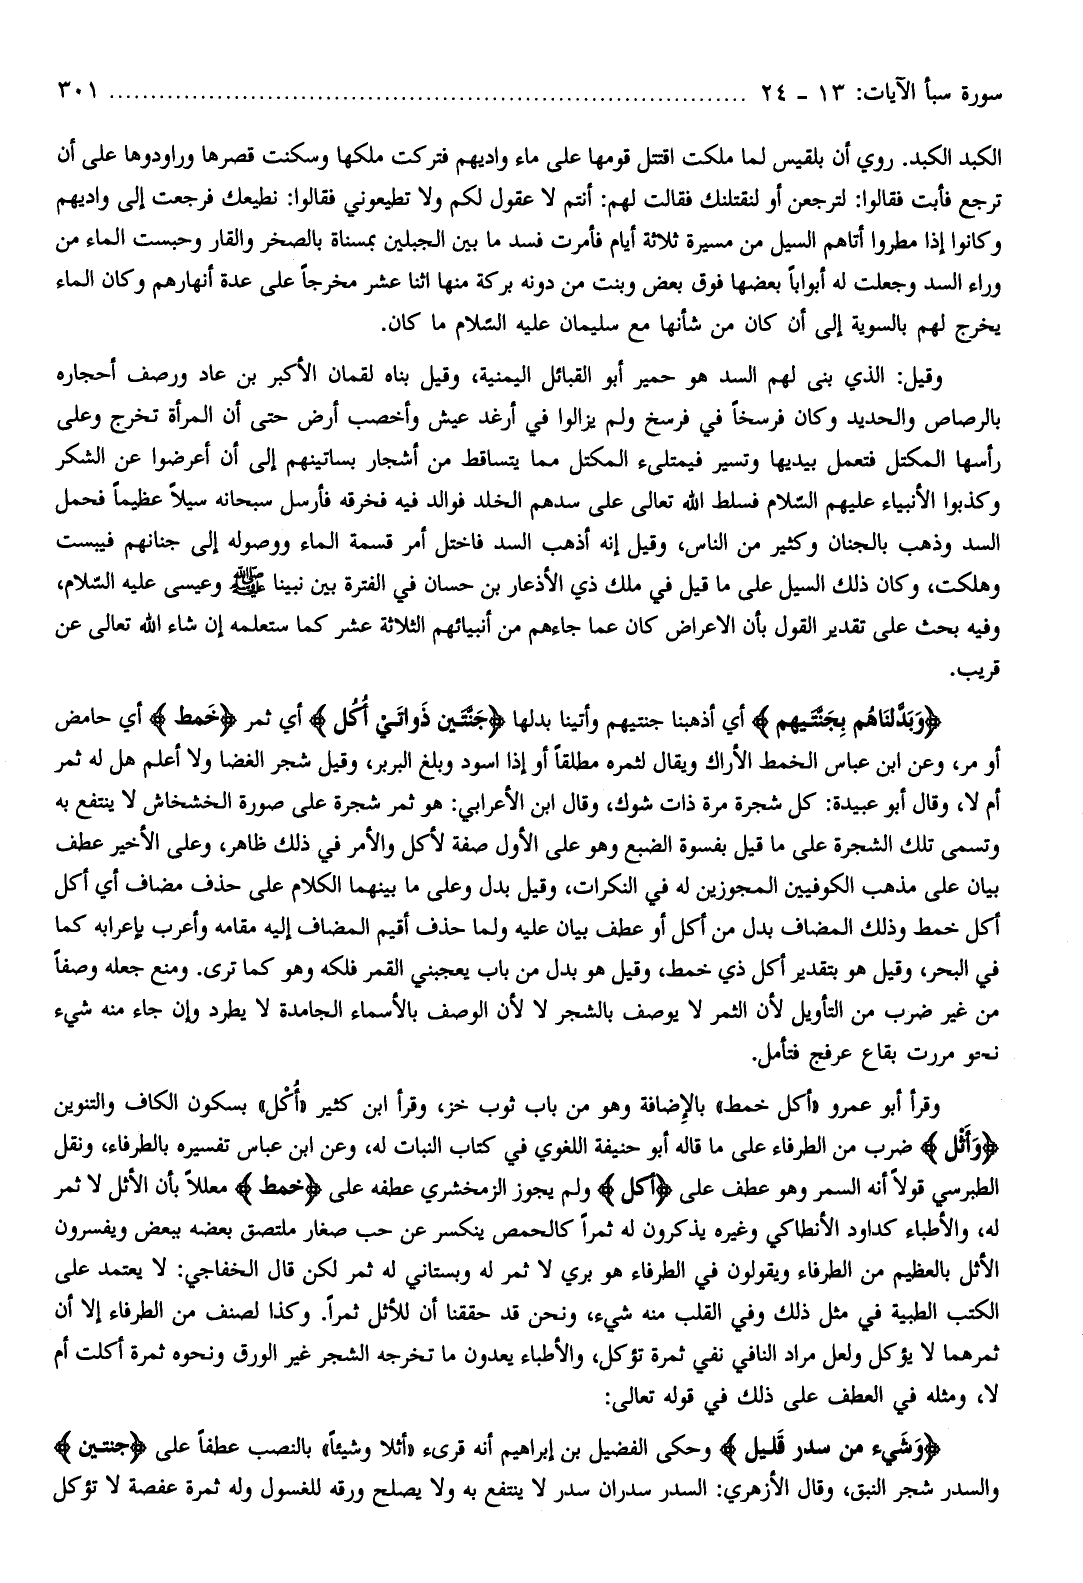 سورة سبأ الآيات: ١٣ - ٢٤ ................................................................................ ٣٠١
الكبد الكبد. روي أن بلقيس لما ملكت اقتتل قومها على ماء واديهم فتركت ملكها وسكنت قصرها وراودوها على أن
ترجع فأبت فقالوا: لترجعن أو لنقتلنك فقالت لهم: أنتم لا عقول لكم ولا تطيعوني فقالوا: نطيعك فرجعت إلى واديهم
وكانوا إذا مطروا أتاهم السيل من مسيرة ثلاثة أيام فأمرت فسد ما بين الجبلين بمسناة بالصخر والقار وحبست الماء من
وراء السد وجعلت له أبواباً بعضها فوق بعض وبنت من دونه بركة منها اثنا عشر مخرجاً على عدة أنهارهم وكان الماء
يخرج لهم بالسوية إلى أن كان من شأنها مع سليمان عليه السّلام ما كان.
وقيل: الذي بنى لهم السد هو حمير أبو القبائل اليمنية، وقيل بناه لقمان الأكبر بن عاد ورصف أحجاره
بالرصاص والحديد وكان فرسخاً في فرسخ ولم يزالوا في أرغد عيش وأخصب أرض حتى أن المرأة تخرج وعلى
رأسها المكتل فتعمل بيديها وتسير فيمتلىء المكتل مما يتساقط من أشجار بساتينهم إلى أن أعرضوا عن الشكر
وكذبوا الأنبياء عليهم السّلام فسلط الله تعالى على سدهم الخلد فوالد فيه فخرقه فأرسل سبحانه سيلاً عظيماً فحمل
السد وذهب بالجنان وكثير من الناس، وقيل إنه أذهب السد فاختل أمر قسمة الماء ووصوله إلى جنانهم فيبست
وهلكت، وكان ذلك السيل على ما قيل في ملك ذي الأذعار بن حسان في الفترة بين نبينا ﷺ وعيسى عليه السّلام،
وفيه بحث على تقدير القول بأن الاعراض كان عما جاءهم من أنبيائهم الثلاثة عشر كما ستعلمه إن شاء الله تعالى عن
قريب.
﴿وَبَدَّلنَاهُم بِجَنَّتَيهِم﴾ أي أذهبنا جنتيهم وأتينا بدلها ﴿جَنَّتَين ذَواتَيْ أُكُل﴾ أي ثمر ﴿خَمط﴾ أي حامض
أو مر، وعن ابن عباس الخمط الأراك ويقال لثمره مطلقاً أو إذا اسود وبلغ البربر، وقيل شجر الغضا ولا أعلم هل له ثمر
أم لا، وقال أبو عبيدة: كل شجرة مرة ذات شوك، وقال ابن الأعرابي: هو ثمر شجرة على صورة الخشخاش لا ينتفع به
وتسمى تلك الشجرة على ما قيل بفسوة الضبع وهو على الأول صفة لأكل والأمر في ذلك ظاهر، وعلى الأخير عطف
بيان على مذهب الكوفيين المجوزين له في النكرات، وقيل بدل وعلى ما بينهما الكلام على حذف مضاف أي أكل
أكل خمط وذلك المضاف بدل من أكل أو عطف بيان عليه ولما حذف أقيم المضاف إليه مقامه وأعرب بإعرابه كما
في البحر، وقيل هو بتقدير أكل ذي خمط، وقيل هو بدل من باب يعجبني القمر فلكه وهو كما ترى. ومنع جعله وصفاً
من غير ضرب من التأويل لأن الثمر لا يوصف بالشجر لا لأن الوصف بالأسماء الجامدة لا يطرد وإن جاء منه شيء
نحو مررت بقاع عرفج فتأمل.
وقرأ أبو عمرو «أكل خمط» بالإضافة وهو من باب ثوب خز، وقرأ ابن كثير «أُكْل» بسكون الكاف والتنوين
﴿وَأَثْل﴾ ضرب من الطرفاء على ما قاله أبو حنيفة اللغوي في كتاب النبات له، وعن ابن عباس تفسيره بالطرفاء، ونقل
الطبرسي قولاً أنه السمر وهو عطف على ﴿أكل﴾ ولم يجوز الزمخشري عطفه على ﴿خمط﴾ معللاً بأن الأثل لا ثمر
له، والأطباء كداود الأنطاكي وغيره يذكرون له ثمراً كالحمص ينكسر عن حب صغار ملتصق بعضه ببعض ويفسرون
الأثل بالعظيم من الطرفاء ويقولون في الطرفاء هو بري لا ثمر له وبستاني له ثمر لكن قال الخفاجي: لا يعتمد على
الكتب الطبية في مثل ذلك وفي القلب منه شيء، ونحن قد حققنا أن للأثل ثمراً. وكذا لصنف من الطرفاء إلا أن
ثمرهما لا يؤكل ولعل مراد النافي نفي ثمرة تؤكل، والأطباء يعدون ما تخرجه الشجر غير الورق ونحوه ثمرة أكلت أم
لا، ومثله في العطف على ذلك في قوله تعالى:
﴿وَشَيء من سدر قَليل﴾ وحكى الفضيل بن إبراهيم أنه قرىء «أثلا وشيئاً» بالنصب عطفاً على ﴿جنتين﴾
والسدر شجر النبق، وقال الأزهري: السدر سدران سدر لا ينتفع به ولا يصلح ورقه للغسول وله ثمرة عفصة لا تؤكل